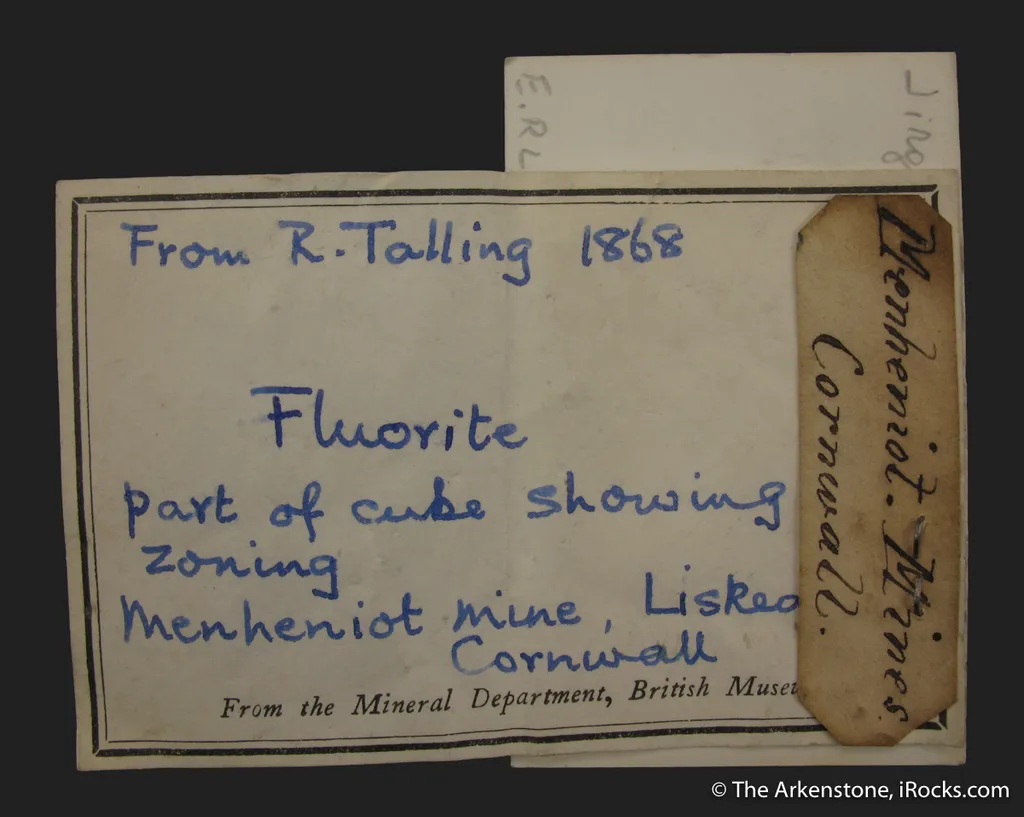 From R. Talling 1868
Fluorite
part of cube showing
zoning
Menheniot mine, Liskea
Cornwall
From the Mineral Department, British Museu
Menheniot. Mines.
Cornwall.
E.RL
© The Arkenstone, iRocks.com